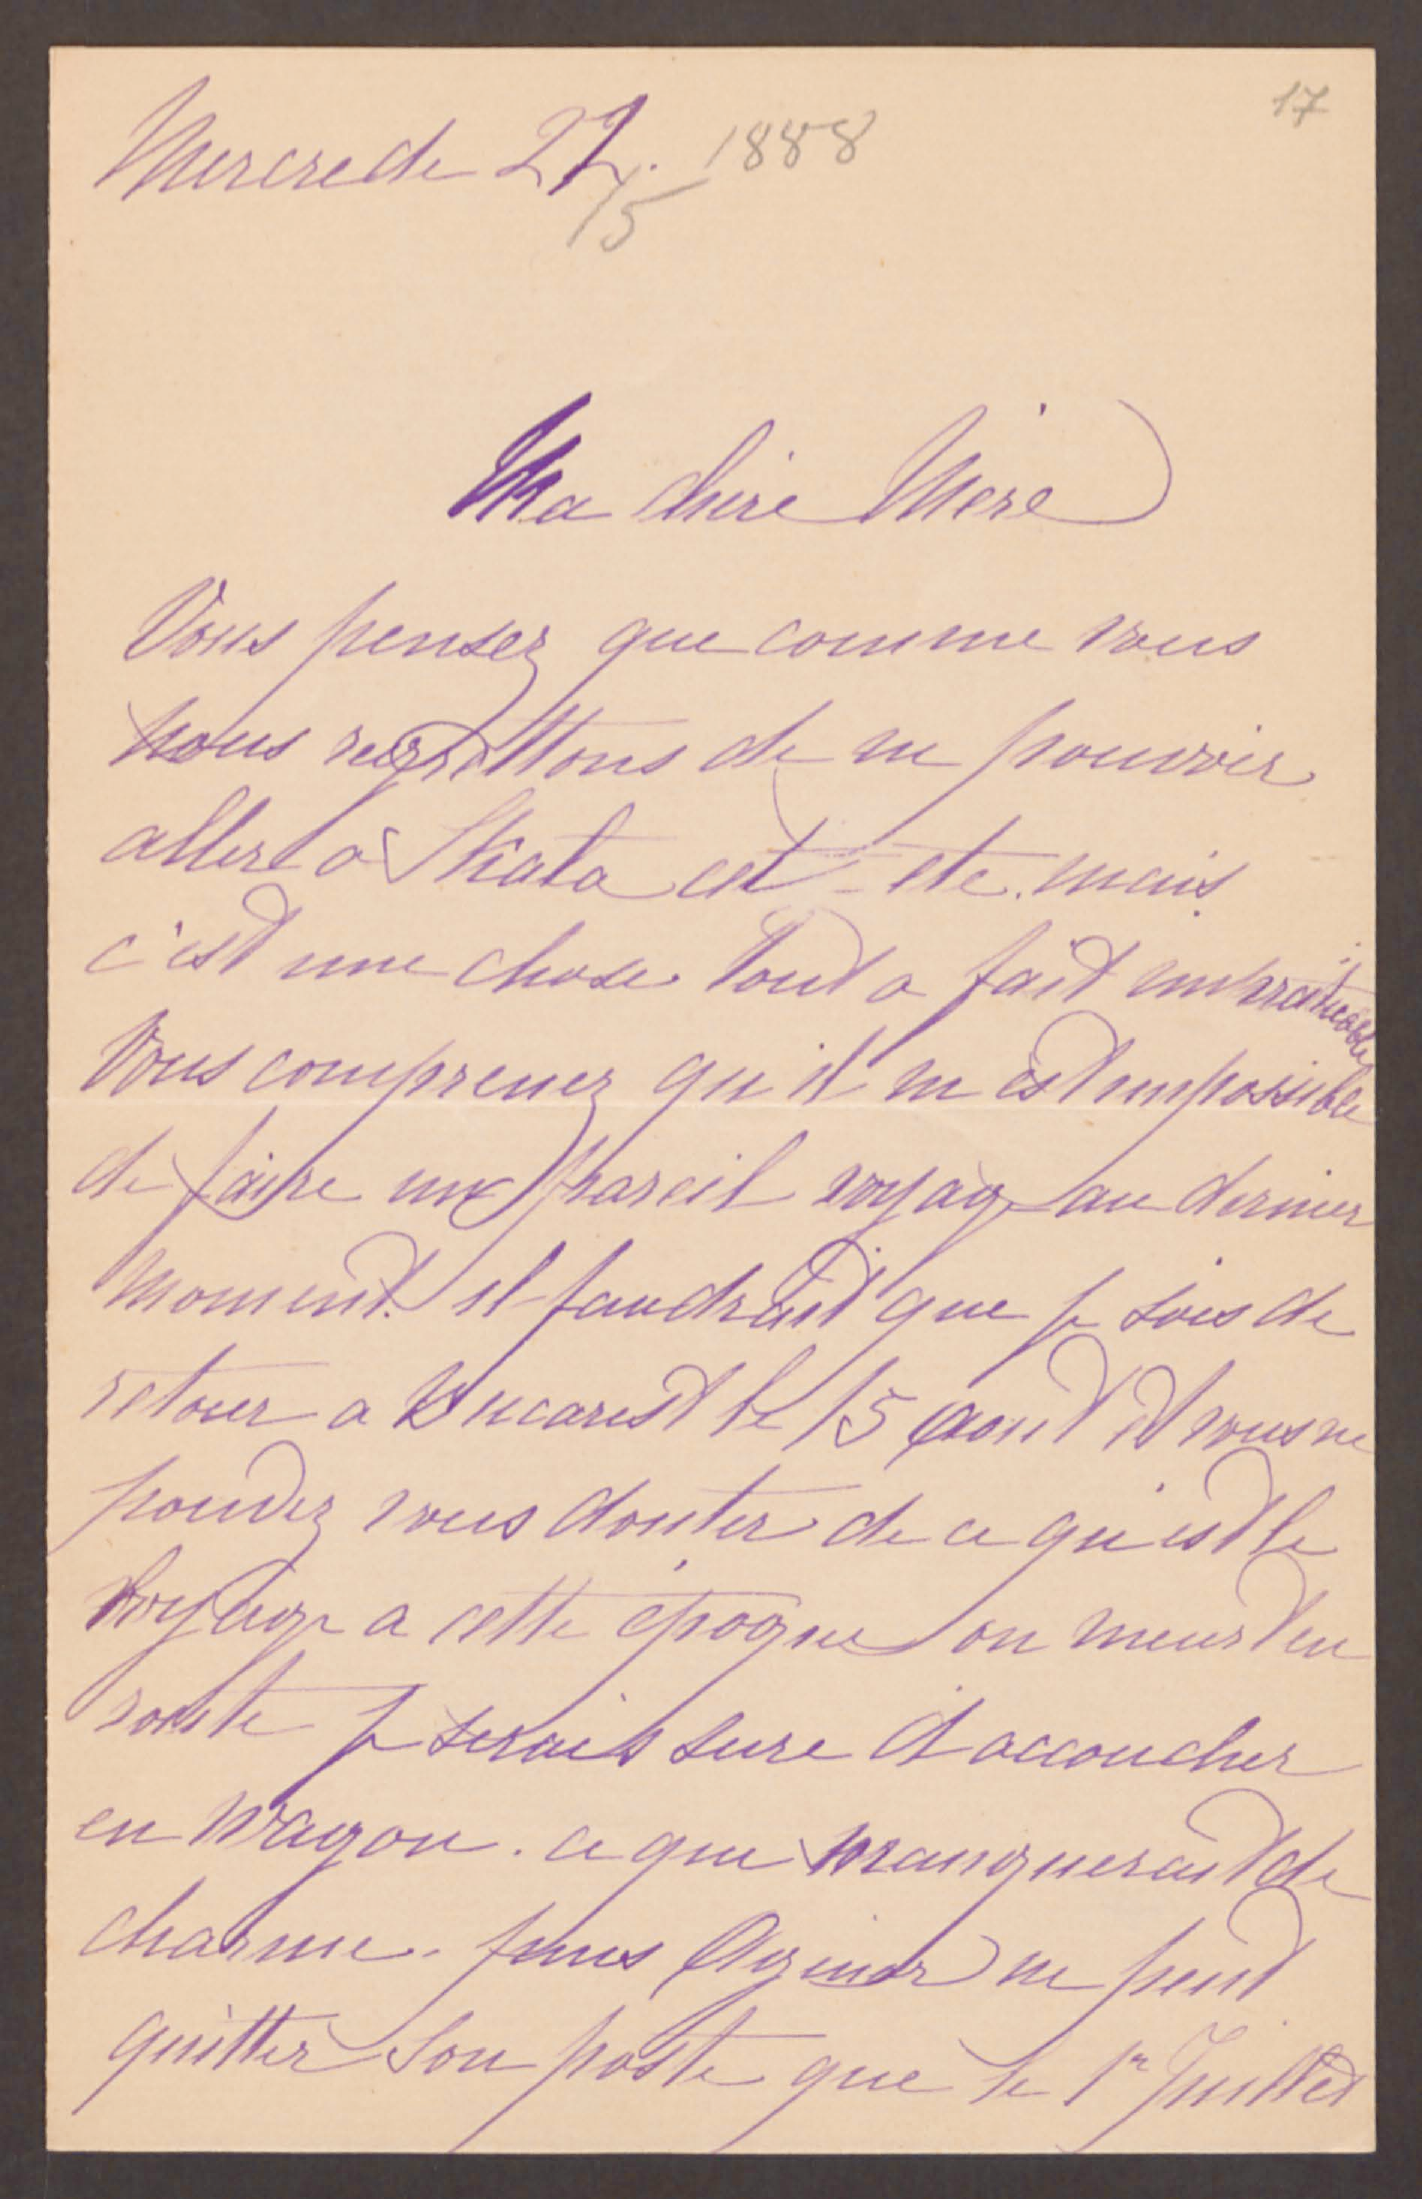 17
Mercrede 22/5 1888
Ma chere Mere
Vous pensez que comme vous
nous regrettons de ne pouvoir
aller a Skata cet ete. mais
c'est une chose tout a fait impraticable
Vous comprenez qu'il m'est impossible
de faire un pareil voyage au dernier
moment. il faudrait que je sois de
retour a Bucarest le 15 aout et vous ne
pouvez vous douter de ce qu'est le
voyage a cette époque on meurt en
route je serais sure d'accoucher
en wagon. ce que manquerait de
charme. puis Agenor ne peut
quitter son poste que le 1r Juillet